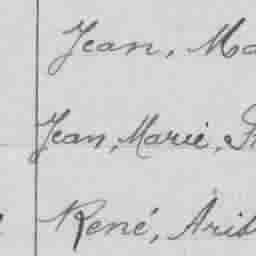 Jean, Ma
Jean, Marie, 
René, Aris